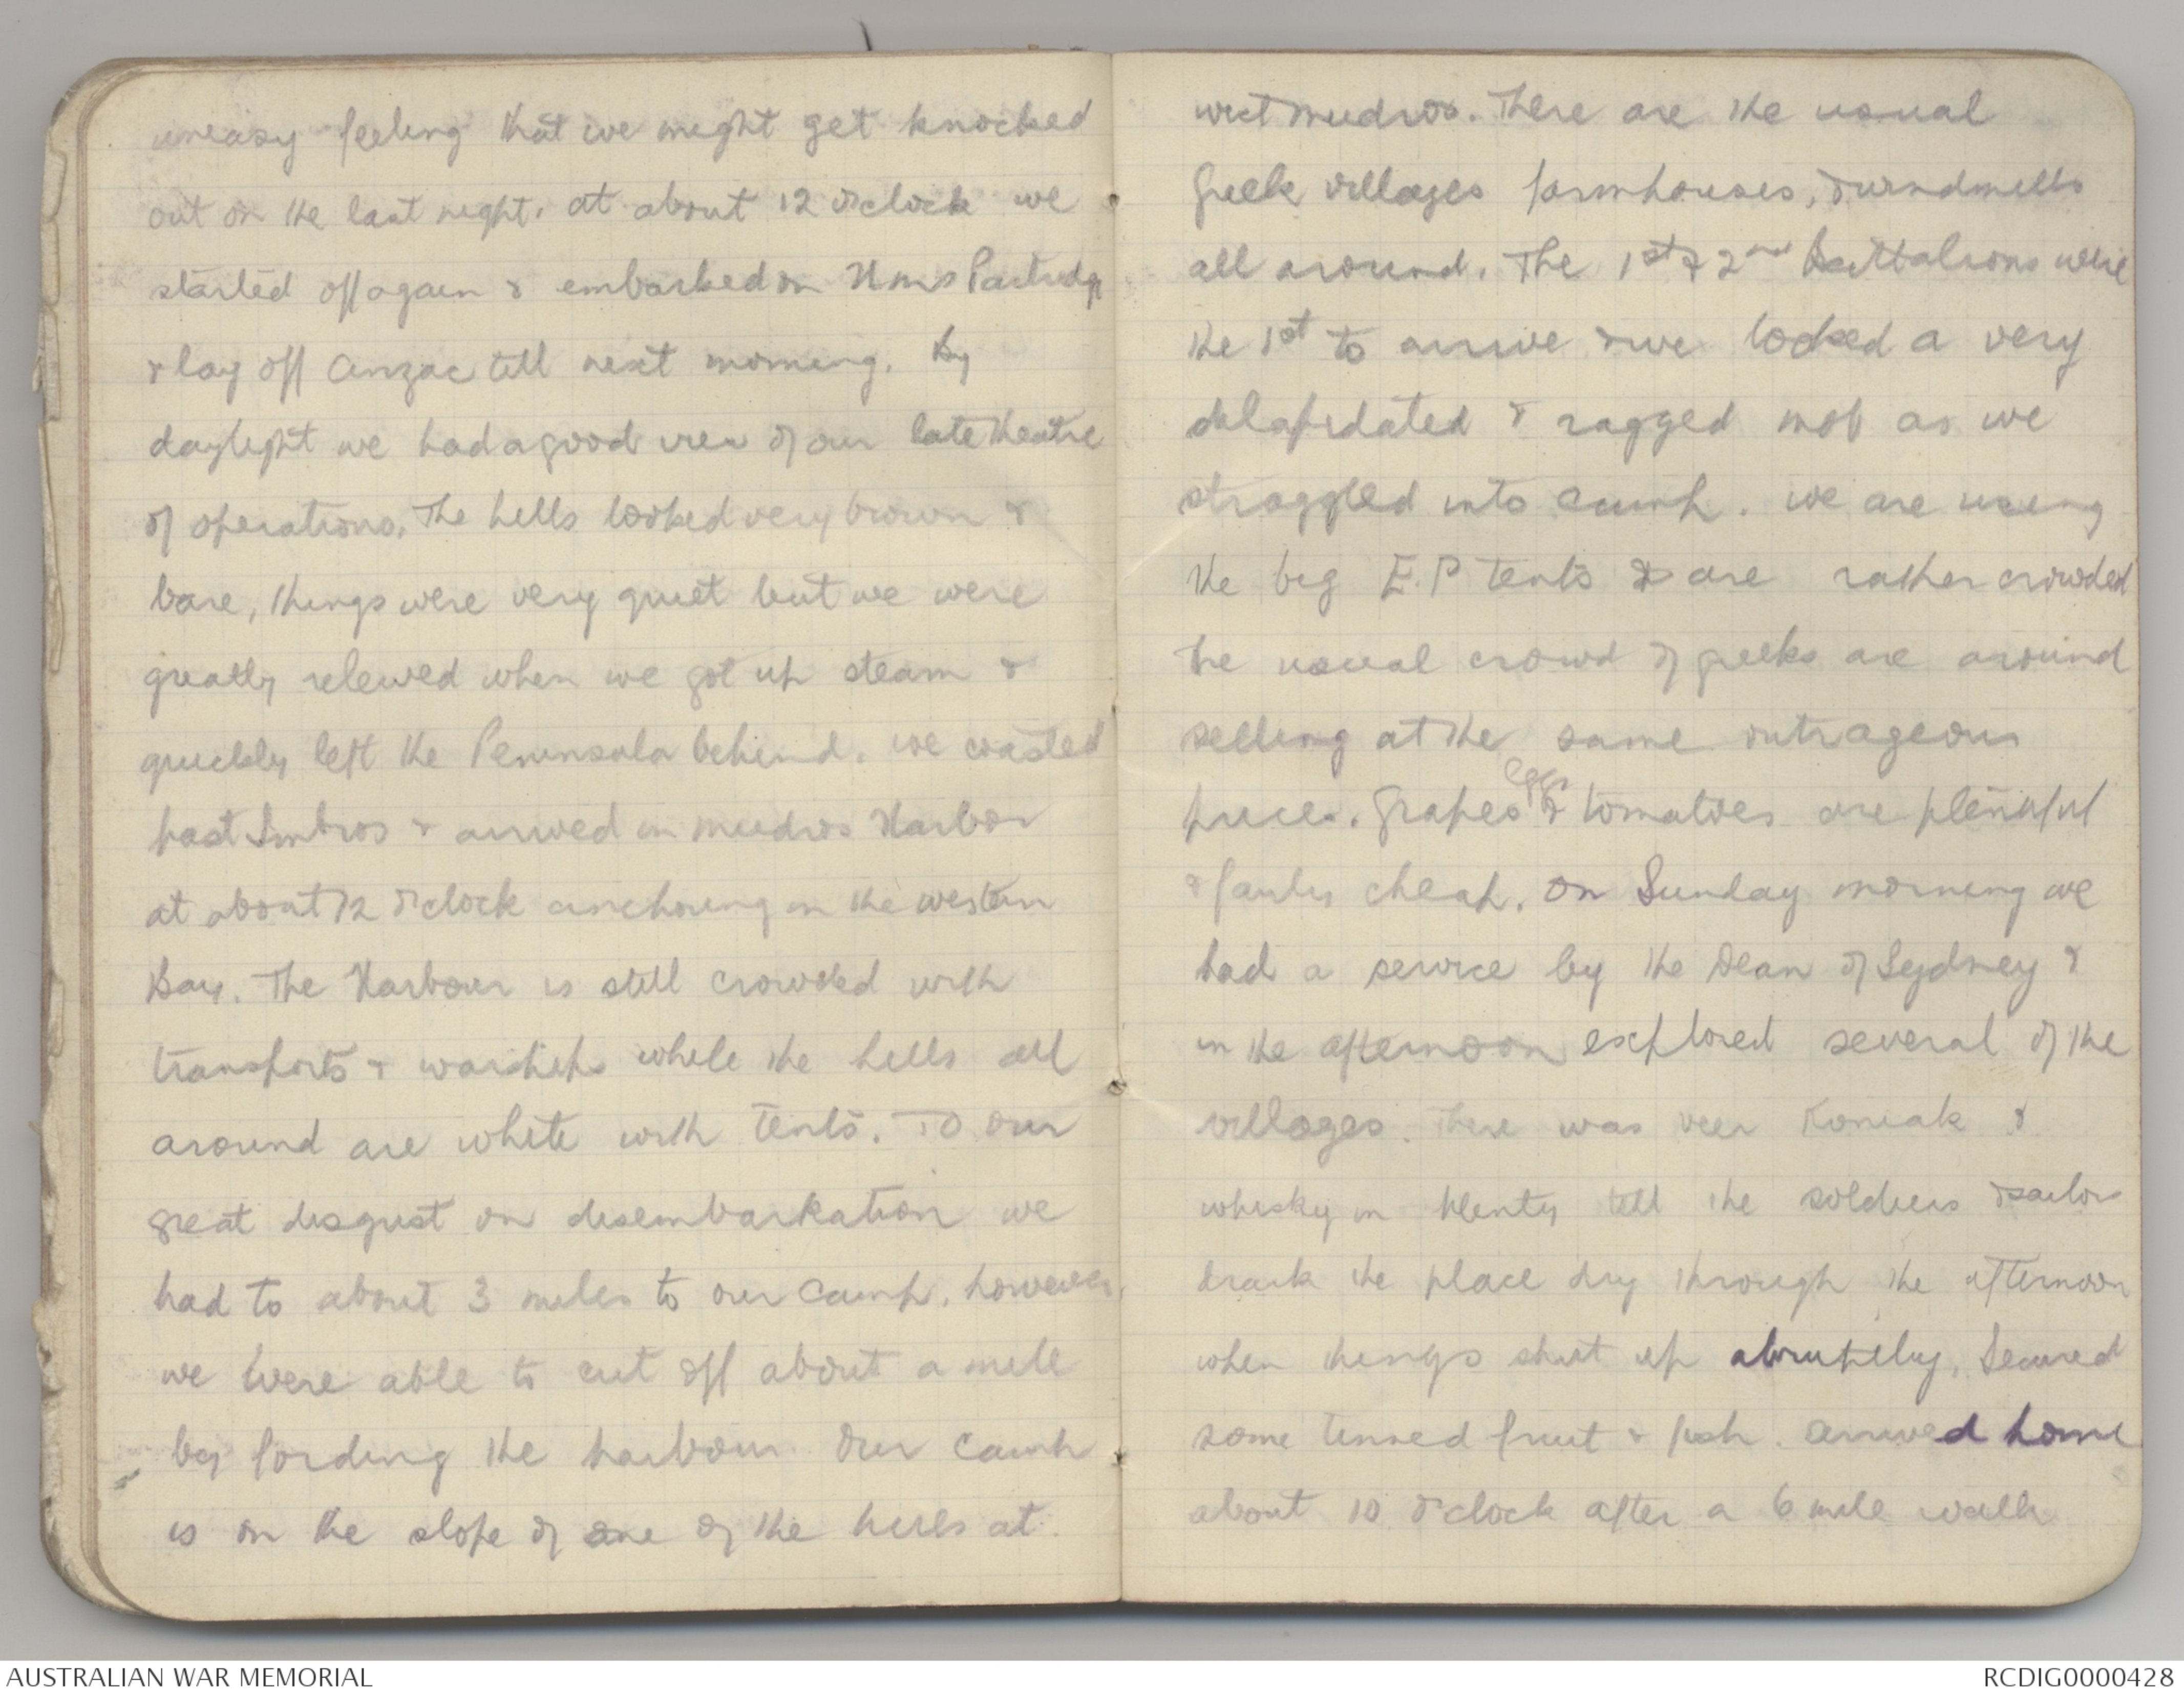 uneasy feeling that we might get knocked
out on the last night. at about 12 o'clock we
started off again & embarked on Hms Partridge
& lay off Anzac till next morning. By
daylight we had a good view of our late theatre
of operations. The hills looked very brown &
bare, things were very quiet but we were
greatly relieved when we got up steam &
quickly left the Peninsula behind. we coasted
past Imbros & arrived in mudros Harbor
at about 12 o'clock anchoring in the western
Bay. The Harbour is still crowded with
transports & warships while the hills all
around are white with tents. To our
great disgust on disembarkation we
had to about 3 miles to our camp, however,
we were able to cut off about a mile
by fording the harbour Our camp
is on the slope of one of the hills at
west mudros. There are the usual
Greek villages farmhouses, & windmills
all around. The 1st & 2nd Battalions were
the 1st to arrive & we looked a very
dilapidated & ragged mob as we
straggled into camp. we are using
the big E.P tents & are rather crowded
the usual crowd of greeks are around
selling at the same outrageous
prices. Grapes eggs & tomatoes are plentiful
& fairly cheap. On Sunday morning we
had a service by the Dean of Sydney &
in the afternoon explored several of the
villages. There was beer Koniak &
whisky in plenty till the soldiers & sailors
drank the place dry through the afternoon
when things shut up abruptely, Secured
some tinned fruit & fish. arrived home
about 10 o'clock after a 6 mile walk
AUSTRALIAN WAR MEMORIAL
RCDIG0000428